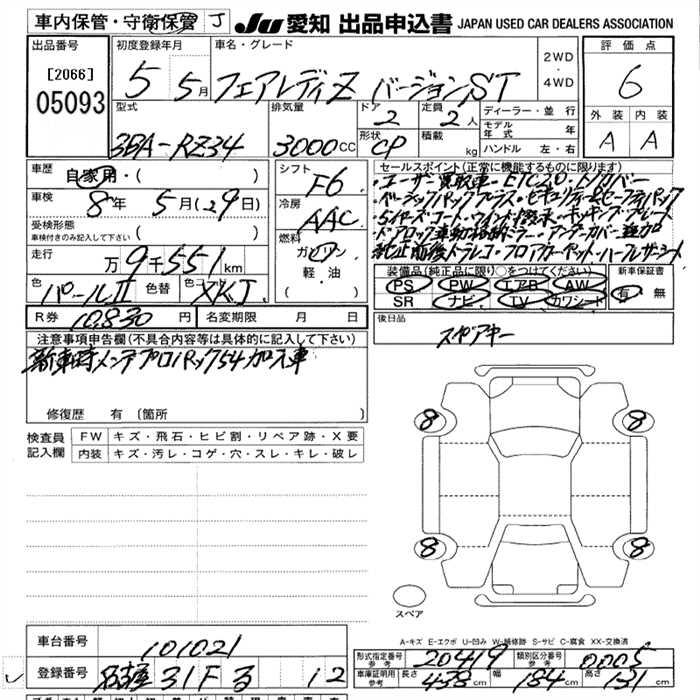 車内保管・守衛保管 J JU 愛知 出品申込書 JAPAN USED CAR DEALERS ASSOCIATION
出品番号 初度登録年月 車名・グレード 評価点
[2066] 5 5月 フェアレディZ バージョンST 2WD・4WD 6
05093
型式 排気量 ドア 定員 ディーラー・並行 外装 内装
3BA-RZ34 3000CC 2 2人 モデル年式 年 A A
形状 CP 積載 kg ハンドル 左・右
車歴 自家用・( ) シフト F6 セールスポイント(正常に機能するものに限ります)
車検 8年 5月(29日) 冷房 AAC ・ユーザー買取車・ETC2.0・
受検形態 車検付きのみ記入して下さい 燃料 ガソリン 軽・油 ( )
走行 万9千551km
・ドアロック連動格納ミラー・アンダーカバー
純正前後ドラレコ・フロアカーペット・
色 パールII 色替 色コードNo. XKJ
装備品(純正品に限り○をつけてください) 新車保証書
PS PW エアB AW 有・無
SR ナビ TV カワシート
R券 10,830円 名変期限 月 日
後日品 スペアキー
注意事項申告欄(不具合内容等は具体的に記入して下さい)
新車時メンテプロパック54加入車
修復歴 有 〔箇所 〕
検査員記入欄 FW キズ・飛石・ヒビ割・リペア跡・X要
内装 キズ・汚レ・コゲ・穴・スレ・キレ・破レ
8 8
8 8
スペア
A-キズ E-エクボ U-凹み W-補修跡 S-サビ C-腐食 XX-交換済
車台番号 101021
型式指定番号 参考 20419 類別区分番号 参考 0005
登録番号 名古屋 31F る 12
車庫証明用 参考 長さ 438cm 幅 184cm 高さ 131cm